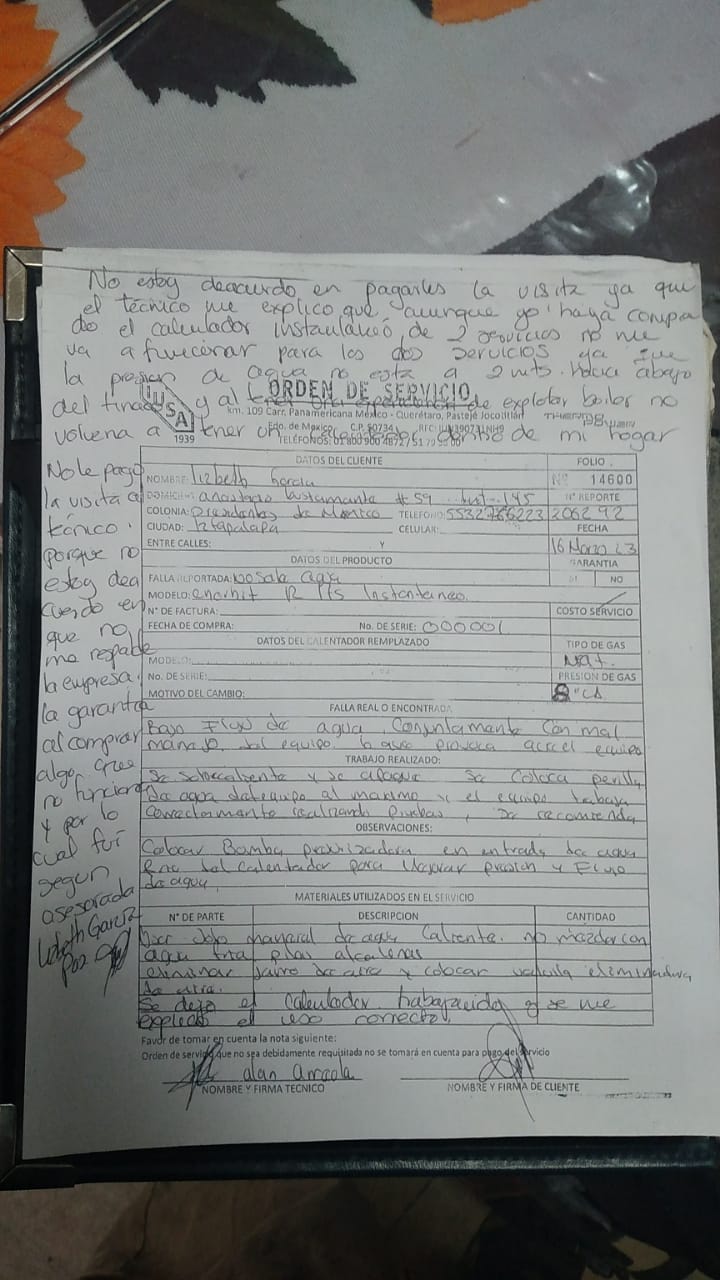 No estoy deacuerdo en pagarles la visita ya que
el técnico me explico que, aunque yo haya compra
do el calculador instantaneó de 2 servicios no me
va a funcionar para los dos servicios ya que
la presion de agua no esta a 2 mts. hacia abajo
del tinaco y al tener de explotar boiler no
volvera a tener un dentro de mi hogar
IUSA
1939
ORDEN DE SERVICIO
km. 109 Carr. Panamericana México - Querétaro, Pastejé Jocotitlán
Edo. de México C.P. 50734
TELÉFONOS: 01 800 900 4872 / 51
No le pago
la visita al
técnico.
porque no
estoy dea
cuerdo en
que no
me respalde
la empresa.
la garantia
al comprar
algo que
no funciona
y por lo
cual fui
segun
asesorada
Lizbeth Garcia
Paz
DATOS DEL CLIENTE FOLIO
NOMBRE: lizbeth Garcia Nº 14600
DOMICILIO: anastacio bustamante # 59 int-145 Nº REPORTE
COLONIA: Presidentes de Mexico TELEFONO: 5532766223 206292
CIUDAD: Iztapalapa CELULAR: FECHA
ENTRE CALLES: Y 16 Marzo 23
DATOS DEL PRODUCTO GARANTIA
FALLA REPORTADA: no sale agua SI NO
MODELO: Instantaneo
N° DE FACTURA: COSTO SERVICIO
FECHA DE COMPRA: No. DE SERIE: 000001
DATOS DEL CALENTADOR REMPLAZADO TIPO DE GAS
MODELO: Nat.
No. DE SERIE: PRESION DE GAS
MOTIVO DEL CAMBIO: 8" CA
FALLA REAL O ENCONTRADA
Bajo Flujo de agua, Conjuntamente Con mal
manejo del equipo. lo que provoca que el equipo
TRABAJO REALIZADO:
Se sobrecaliente y se apague Se coloca perilla
de agua del equipo al maximo y el equipo trabaja
Correctamente realizando pruebas, se recomienda
OBSERVACIONES:
Colocar Bomba presurizadora en entrada de agua
Fria del Calentador para Mejorar presion y Flujo
de agua
MATERIALES UTILIZADOS EN EL SERVICIO
N° DE PARTE DESCRIPCION CANTIDAD
Usar solo maneral de agua Caliente. no mezclar con
agua fria, pilas alcalinas
eliminar jarro de aire y colocar valvula eliminadora
de aire.
Se dejo el Calentador trabajando y se me
explico el uso correcto.
Favor de tomar en cuenta la nota siguiente:
Orden de servicio que no sea debidamente requisitado no se tomará en cuenta para pago del servicio
alan
NOMBRE Y FIRMA TECNICO NOMBRE Y FIRMA DE CLIENTE